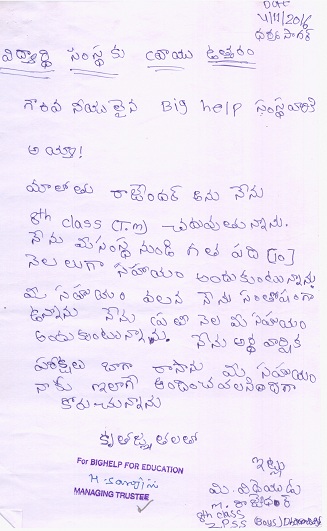 Date
4/11/2016
ధర్మసాగర్
విద్యార్థి సంస్థకు వ్రాయు ఉత్తరం
గౌరవనీయులైన Big help సంస్థవారికి
అయ్యా!
మాలోతు రాజేందర్ అను నేను
8th class (T.m) చదువుతున్నాను.
నేను మీ సంస్థ నుండి గత పది [10]
నెలలుగా సహాయం అందుకుంటున్నాను.
మీ సహాయం వలన నేను సంతోషంగా
ఉన్నాను నేను ప్రతి నెల మీ సహాయం
అందుకుంటున్నాను. నేను అర్ధ వార్షిక
పరీక్షలు బాగా రాసాను మీ సహాయం
నాకు ఇలాగే అందించవలసిందిగా
కోరుచున్నాను
కృతజ్ఞతలతో
For BIGHELP FOR EDUCATION
MANAGING TRUSTEE
ఇట్లు
మీ విధేయుడు
M. రాజేందర్
8th class
Z.P.S.S (Boys)